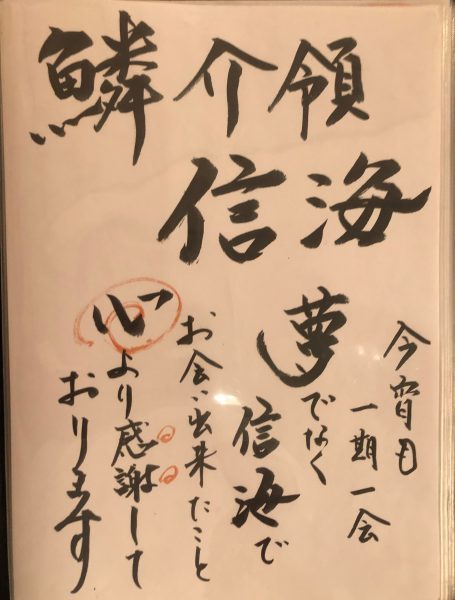 鱗介領
信海
今宵も
一期一会
夢でなく
信海で
お会い出来たこと
心より感謝して
おります